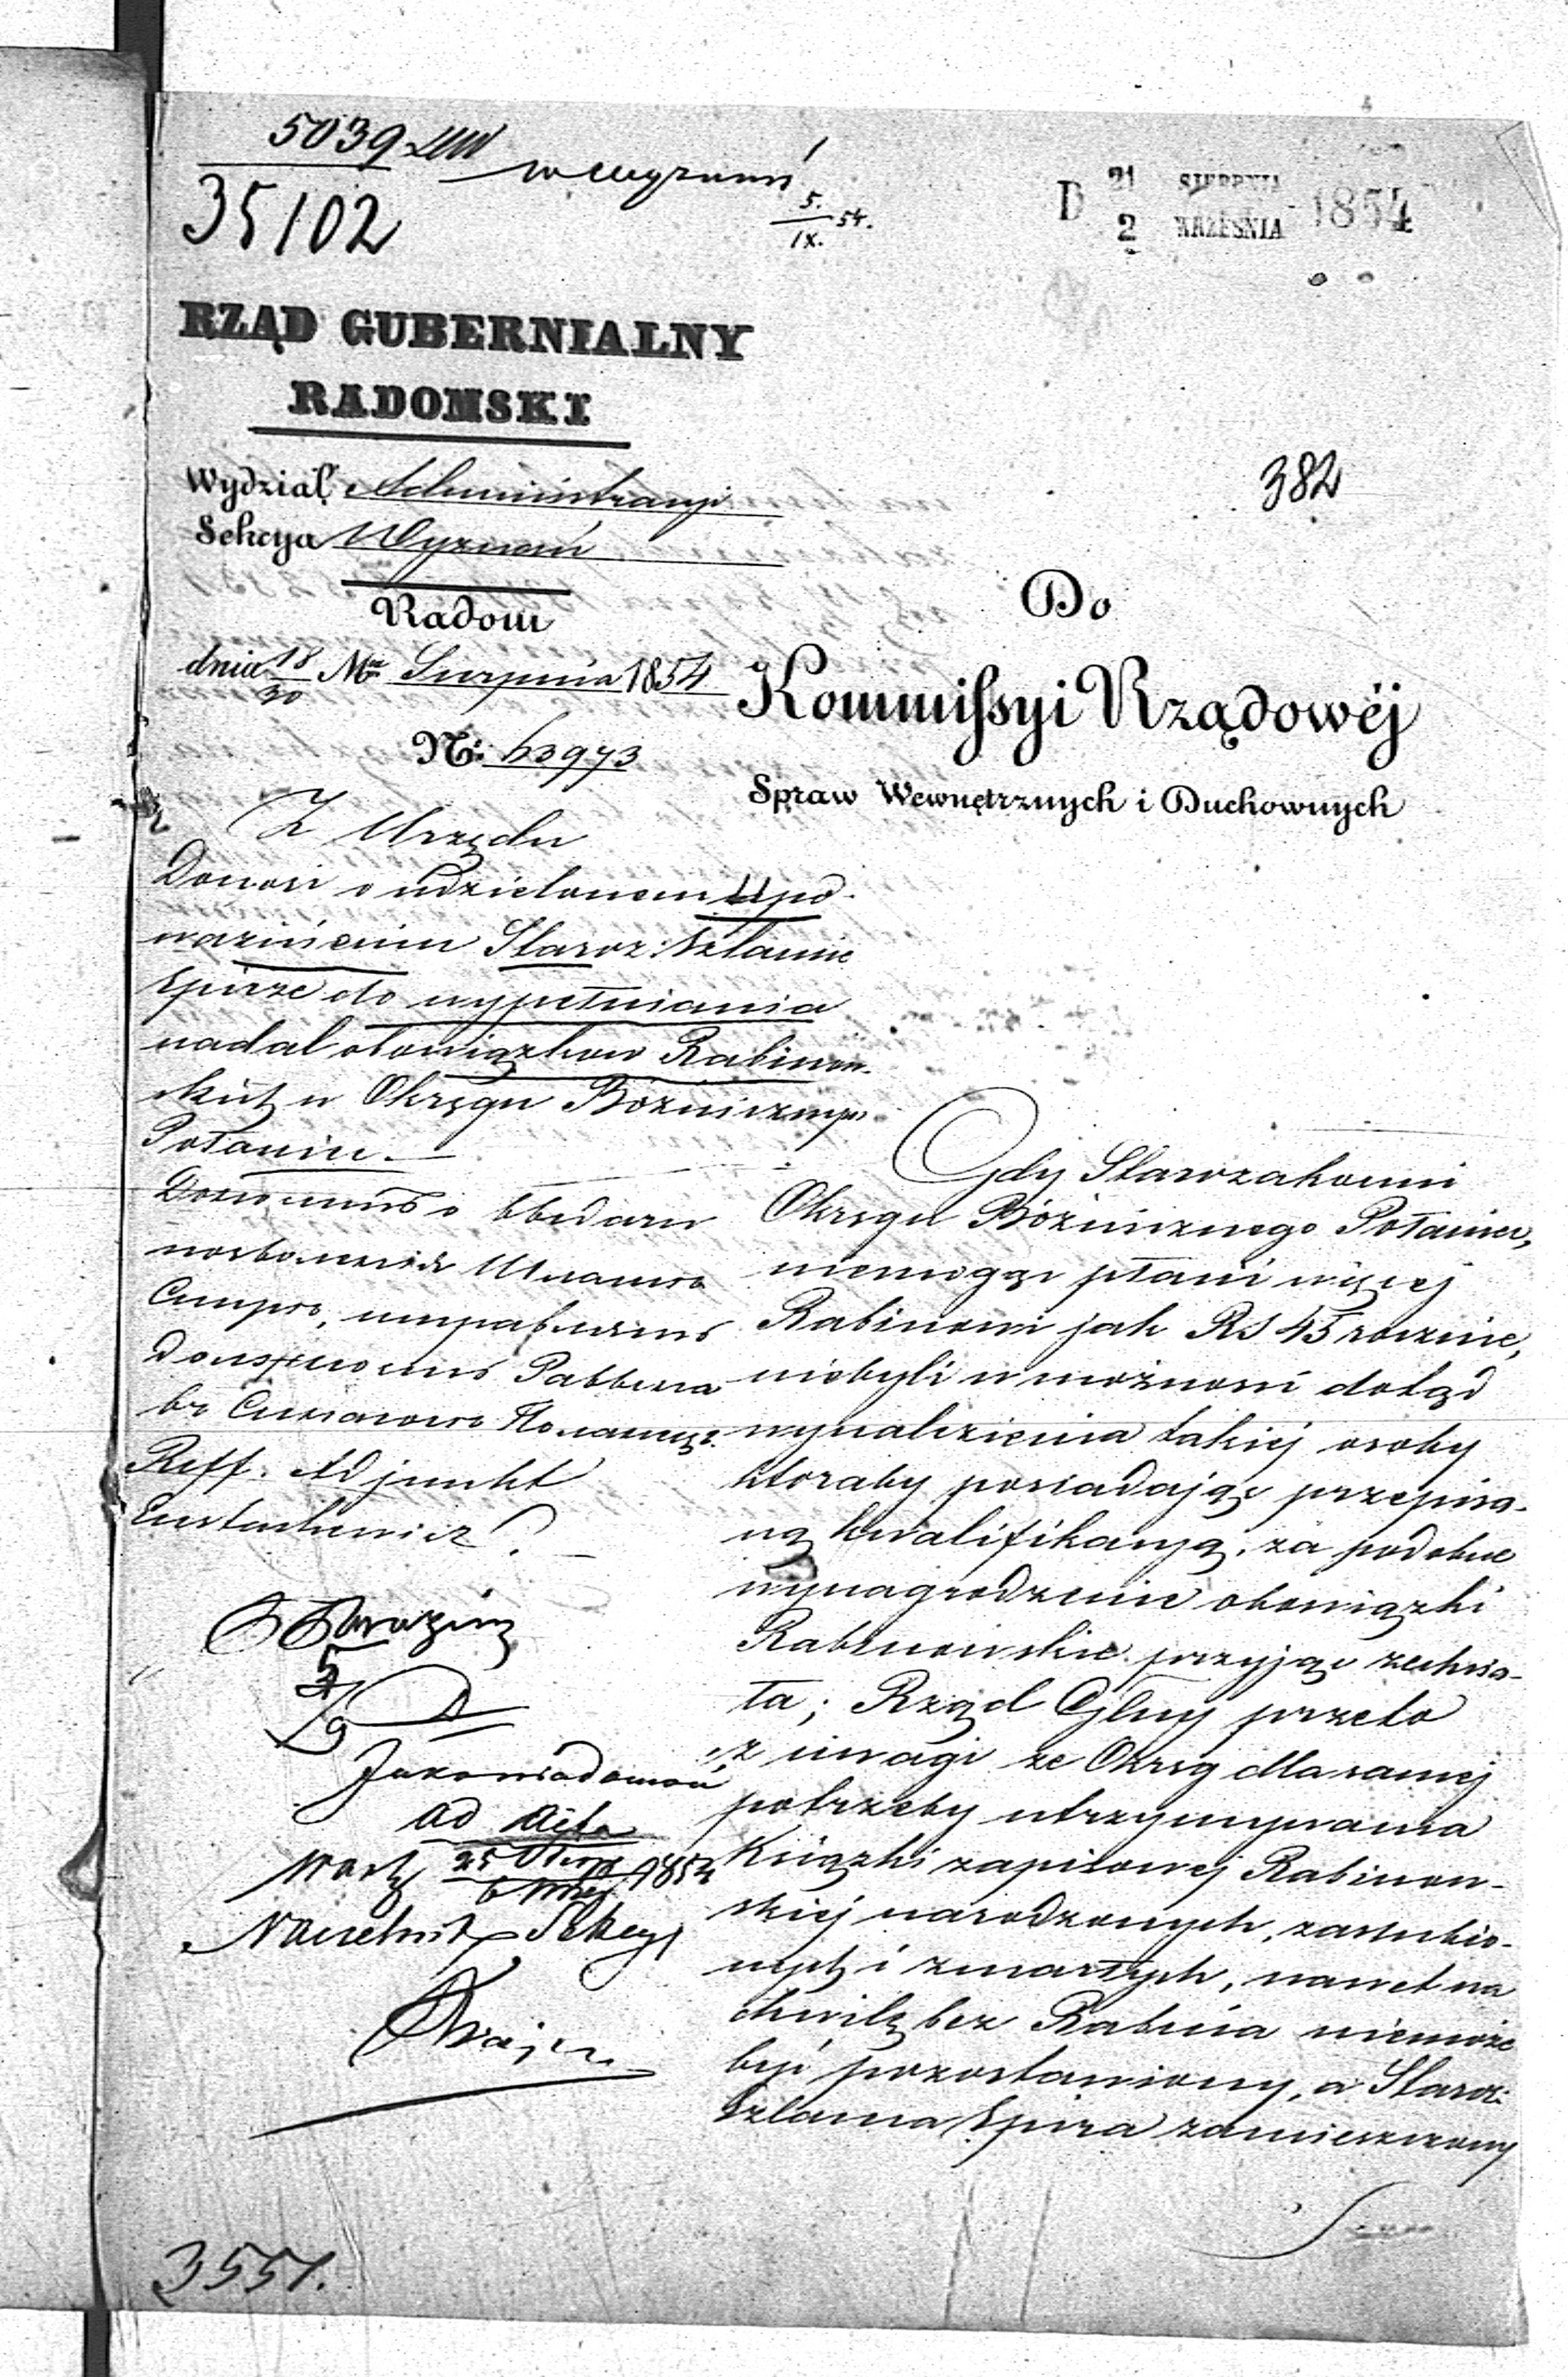 5039
35102
5.
IX. 54.
D 21 SIERPNIA 1854
2 WRZEŚNIA
RZĄD GUBERNIALNY
RADOMSKI
382
Wydział Administracyi
Sekcya Wyznań
Radom
dnia 18/30 Mca Sierpnia 1854
No. 63973
Do
Kommissyi Rządowéj
Spraw Wewnętrznych i Duchownych
Z Urzędu
Donosi o udzielonem Upo-
ważnieniu Staroz: Szlamie
Spirze do wypełniania
nadal obowiązków Rabinow-
skich w Okręgu Bożniczym
Połaniec.
Доноситъ о
Спиръ,
должность Раввина
Reff. Adjunkt
Eustachiewicz
Do wiadomości
ad acta
1854
Naczelnik Sekcyi
Gdy Starozakonni
Okręgu Bóżnicznego Połaniec,
niemogąc płacić więcej
Rabinowi jak RS 45 rocznie,
niebyli w możności dotąd
wynalezienia takiej osoby
któraby posiadając przepisa-
ną kwalifikacyą, za podobne
wynagrodzenie obowiązki
Rabinowskie przyjąć zechcia-
ła; Rząd Gjlny przeto
z uwagi że Okręg dla samej
potrzeby utrzymywania
Książki zapisowej Rabinow-
skiej narodzonych, zaślubio-
nych i zmarłych, nawet na
chwilę bez Rabina niemoże
być pozostawiony, a Staroz:
Szlama Spira zamieszczony
3551.